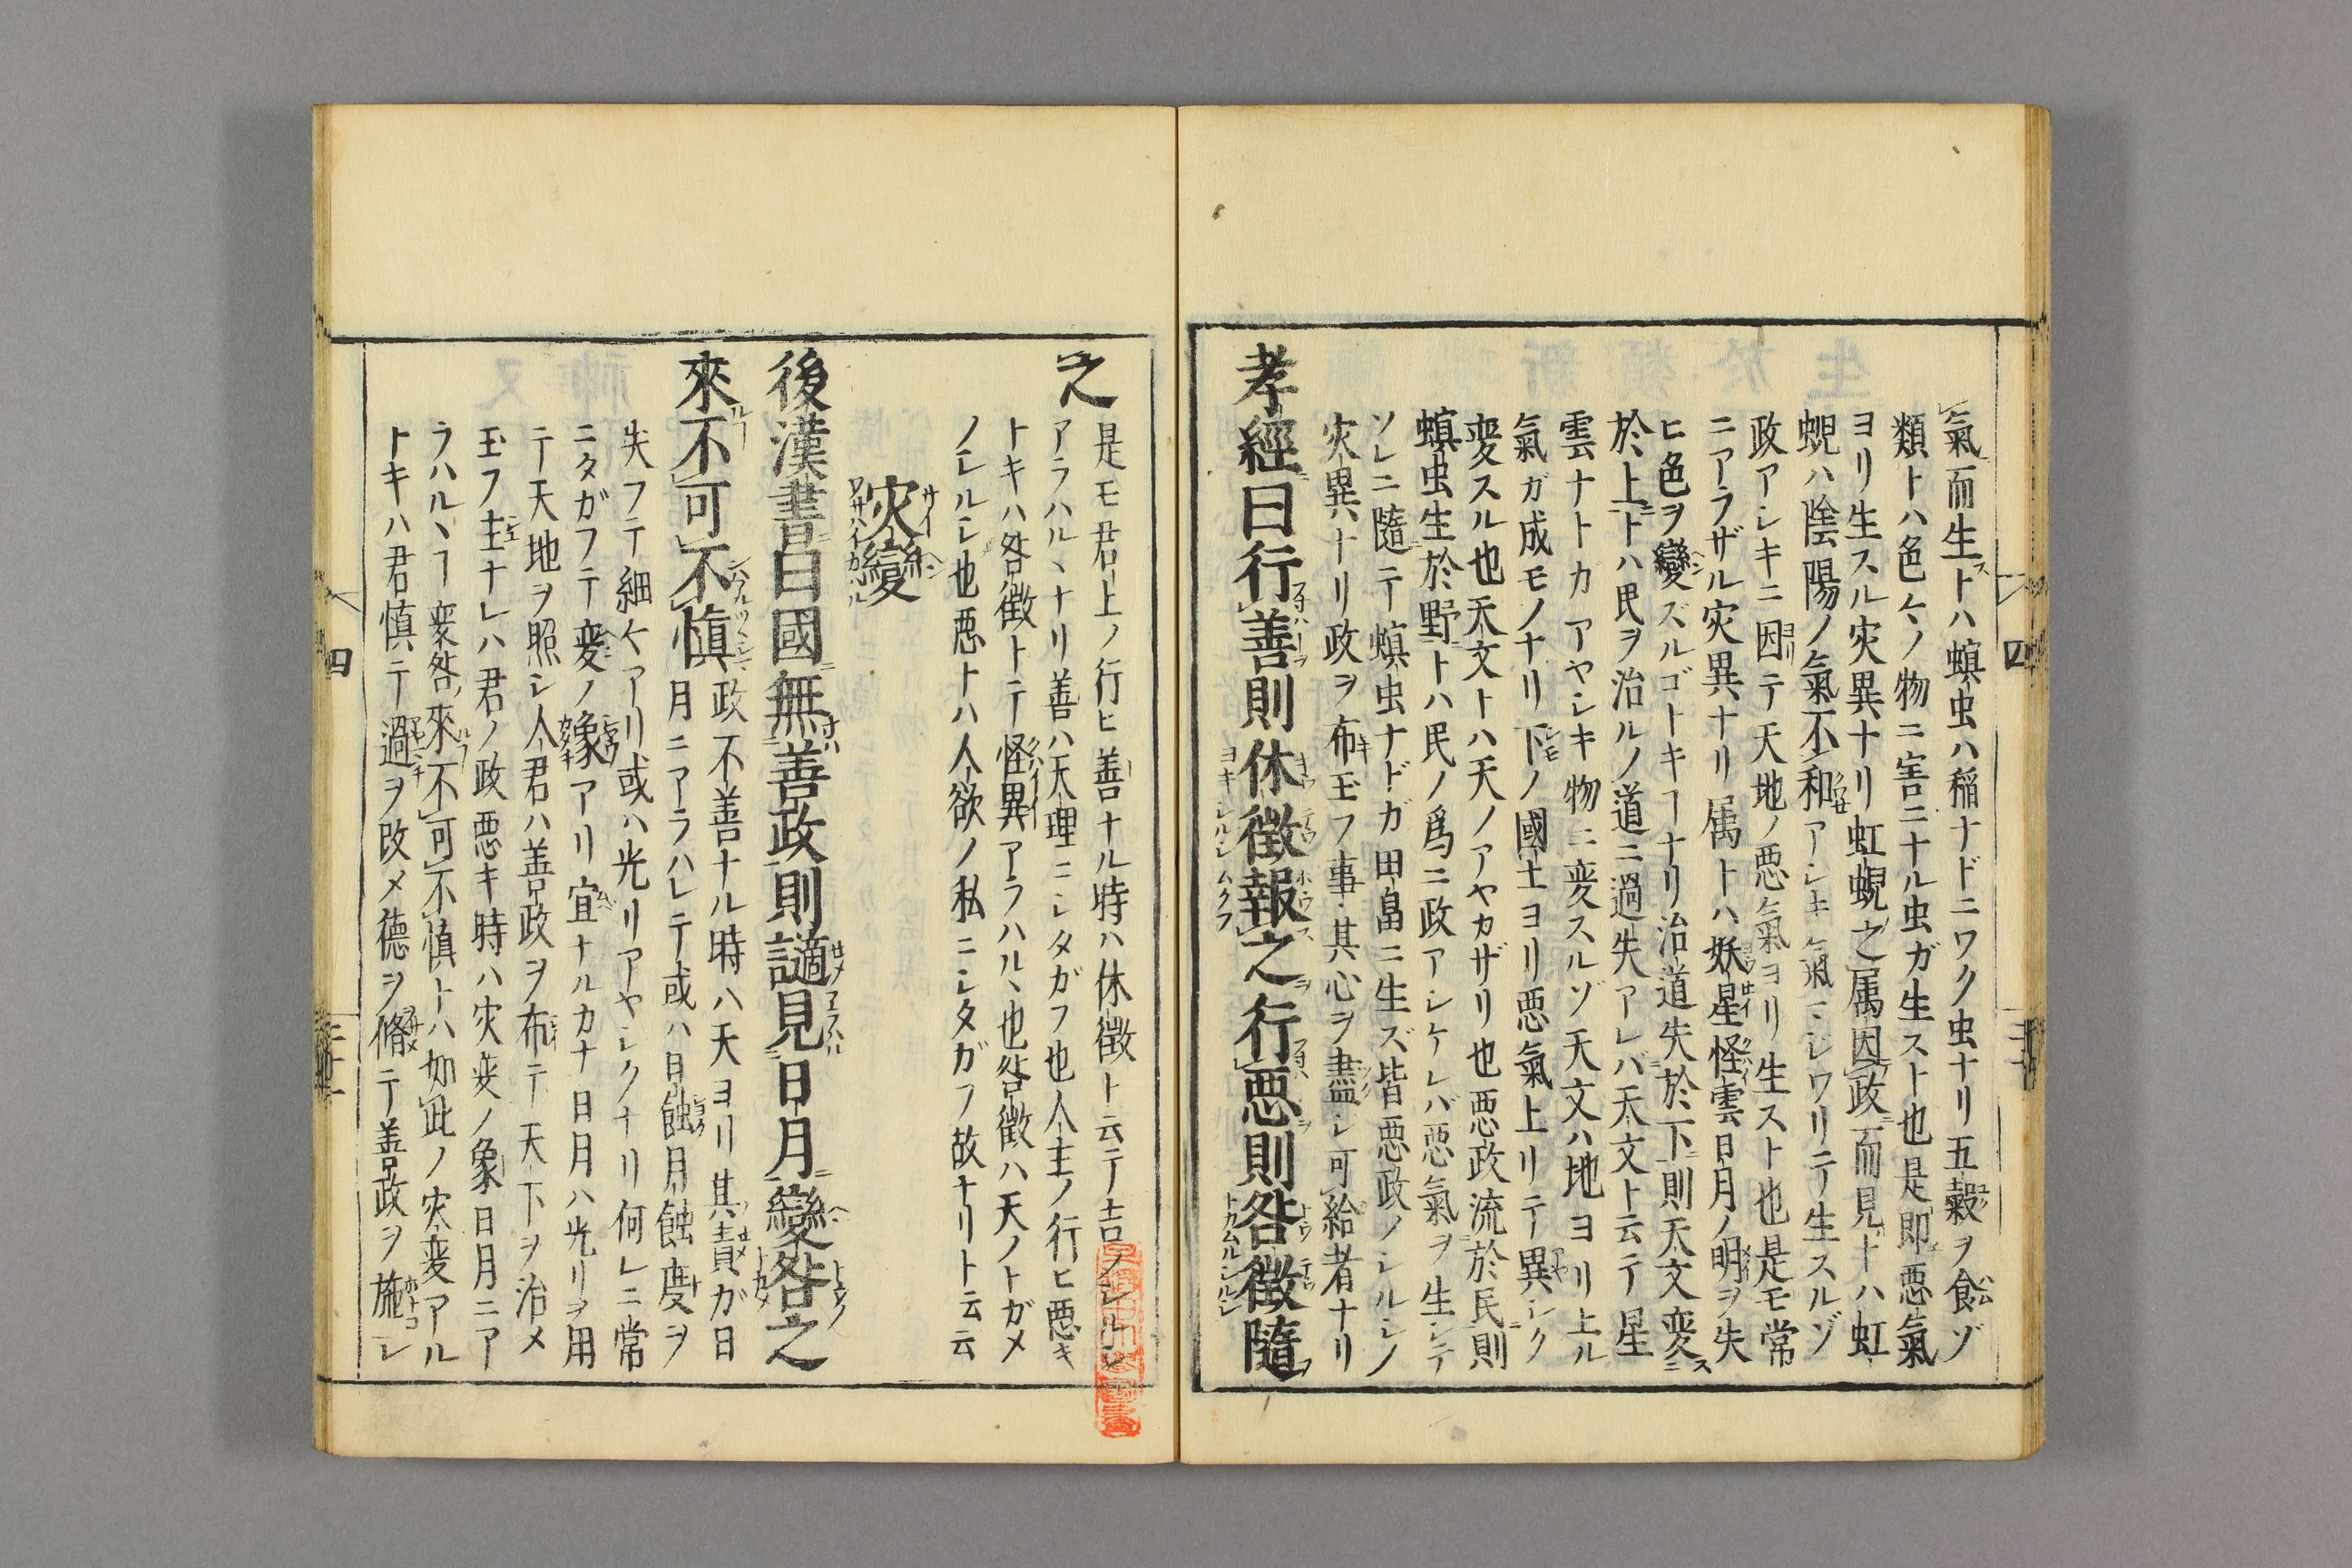 氣而生トハ螟虫ハ稲ナドニワク虫ナリ五穀ヲ食ゾ
類トハ色々ノ物ニ害ニナル虫ガ生スト也是即悪氣
ヨリ生スル灾異ナリ虹蜺之属因政而見トハ虹
蜺ハ陰陽ノ氣不和アシキ氣ニジワリテ生スルゾ
政アシキニ因テ天地ノ悪氣ヨリ生スト也是モ常
ニアラザル灾異ナリ属トハ妖星怪雲日月ノ明ヲ失
ヒ色ヲ變ズルゴトキヿナリ治道失於下則天文変
於上トハ民ヲ治ルノ道ニ過失アレバ天文ト云テ星
雲ナトカアヤシキ物ニ変スルゾ天文ハ地ヨリ上ル
氣ガ成モノナリ下ノ國土ヨリ悪氣上リテ異シク
変スル也天文トハ天ノアヤカザリ也悪政流於民則
螟虫生於野トハ民ノ爲ニ政アシケレバ悪氣ヲ生シテ
ソレニ隨テ螟虫ナドガ田畠ニ生ズ皆悪政ノシルシノ
灾異トリ政ヲ布玉フ事其心ヲ盡シ可給者ナリ
孝經曰行善則休徴報之行悪則咎徴隨
之
是モ君上ノ行ヒ善ナル時ハ休徴ト云テ吉ノシルシ
アラハルヽナリ善ハ天理ニシタガフ也人主ノ行ヒ悪キ
トキハ咎徴トテ怪異アラハルヽ也咎徴ハ天ノトガメ
ノシルシ也悪トハ人欲ノ私ニシタガフ故ナリト云云
灾變
後漢書曰國無善政則謫見日月變咎之
來不可不慎
政不善ナル時ハ天ヨリ其責ガ日
月ニアラハレテ或ハ日蝕月蝕度ヲ
失フテ細ケアリ或ハ光リアヤシクナリ何レニ常
ニタガフテ変ノ象アリ宜ナルカナ日月ハ光リヲ用
テ天地ヲ照シ人君ハ善政ヲ布テ天下ヲ治メ
玉フ主ナレハ君ノ政悪キ時ハ灾変ノ象日月ニア
ラハルヽヿ変咎來不可不慎トハ如此ノ灾変アル
トキハ君慎テ過ヲ改メ德ヲ脩テ善政ヲ施シ
四